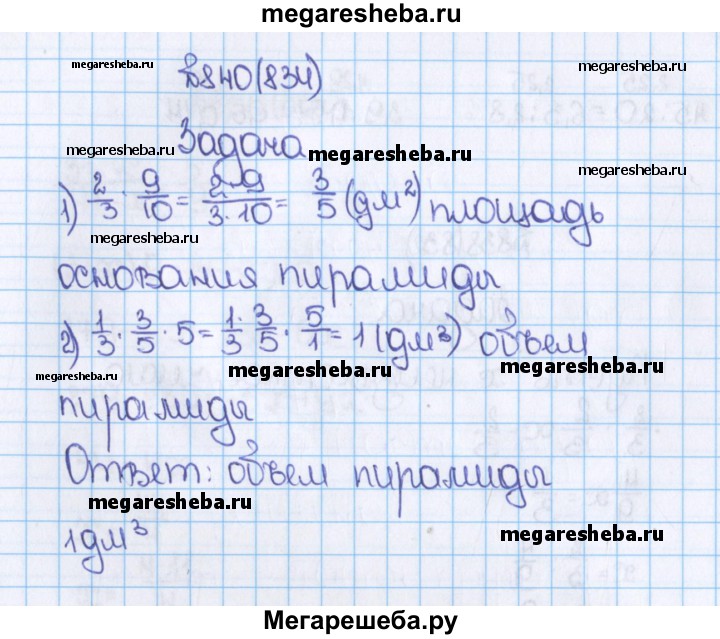 megaresheba.ru
megaresheba.ru
megaresheba.ru
№840(834)
megaresheba.ru
Задача
megaresheba.ru
megaresheba.ru
1) 2/3 · 9/10 = 2·9/3·10 = 3/5 (дм²) площадь
megaresheba.ru
основания пирамиды
2) 1/3 · 3/5 · 5 = 1/3 · 3/5 · 5/1 = 1 (дм³) объем
megaresheba.ru
megaresheba.ru
megaresheba.ru
пирамиды
Ответ: объем пирамиды
megaresheba.ru
1 дм³
megaresheba.ru
Мегарешеба.ру